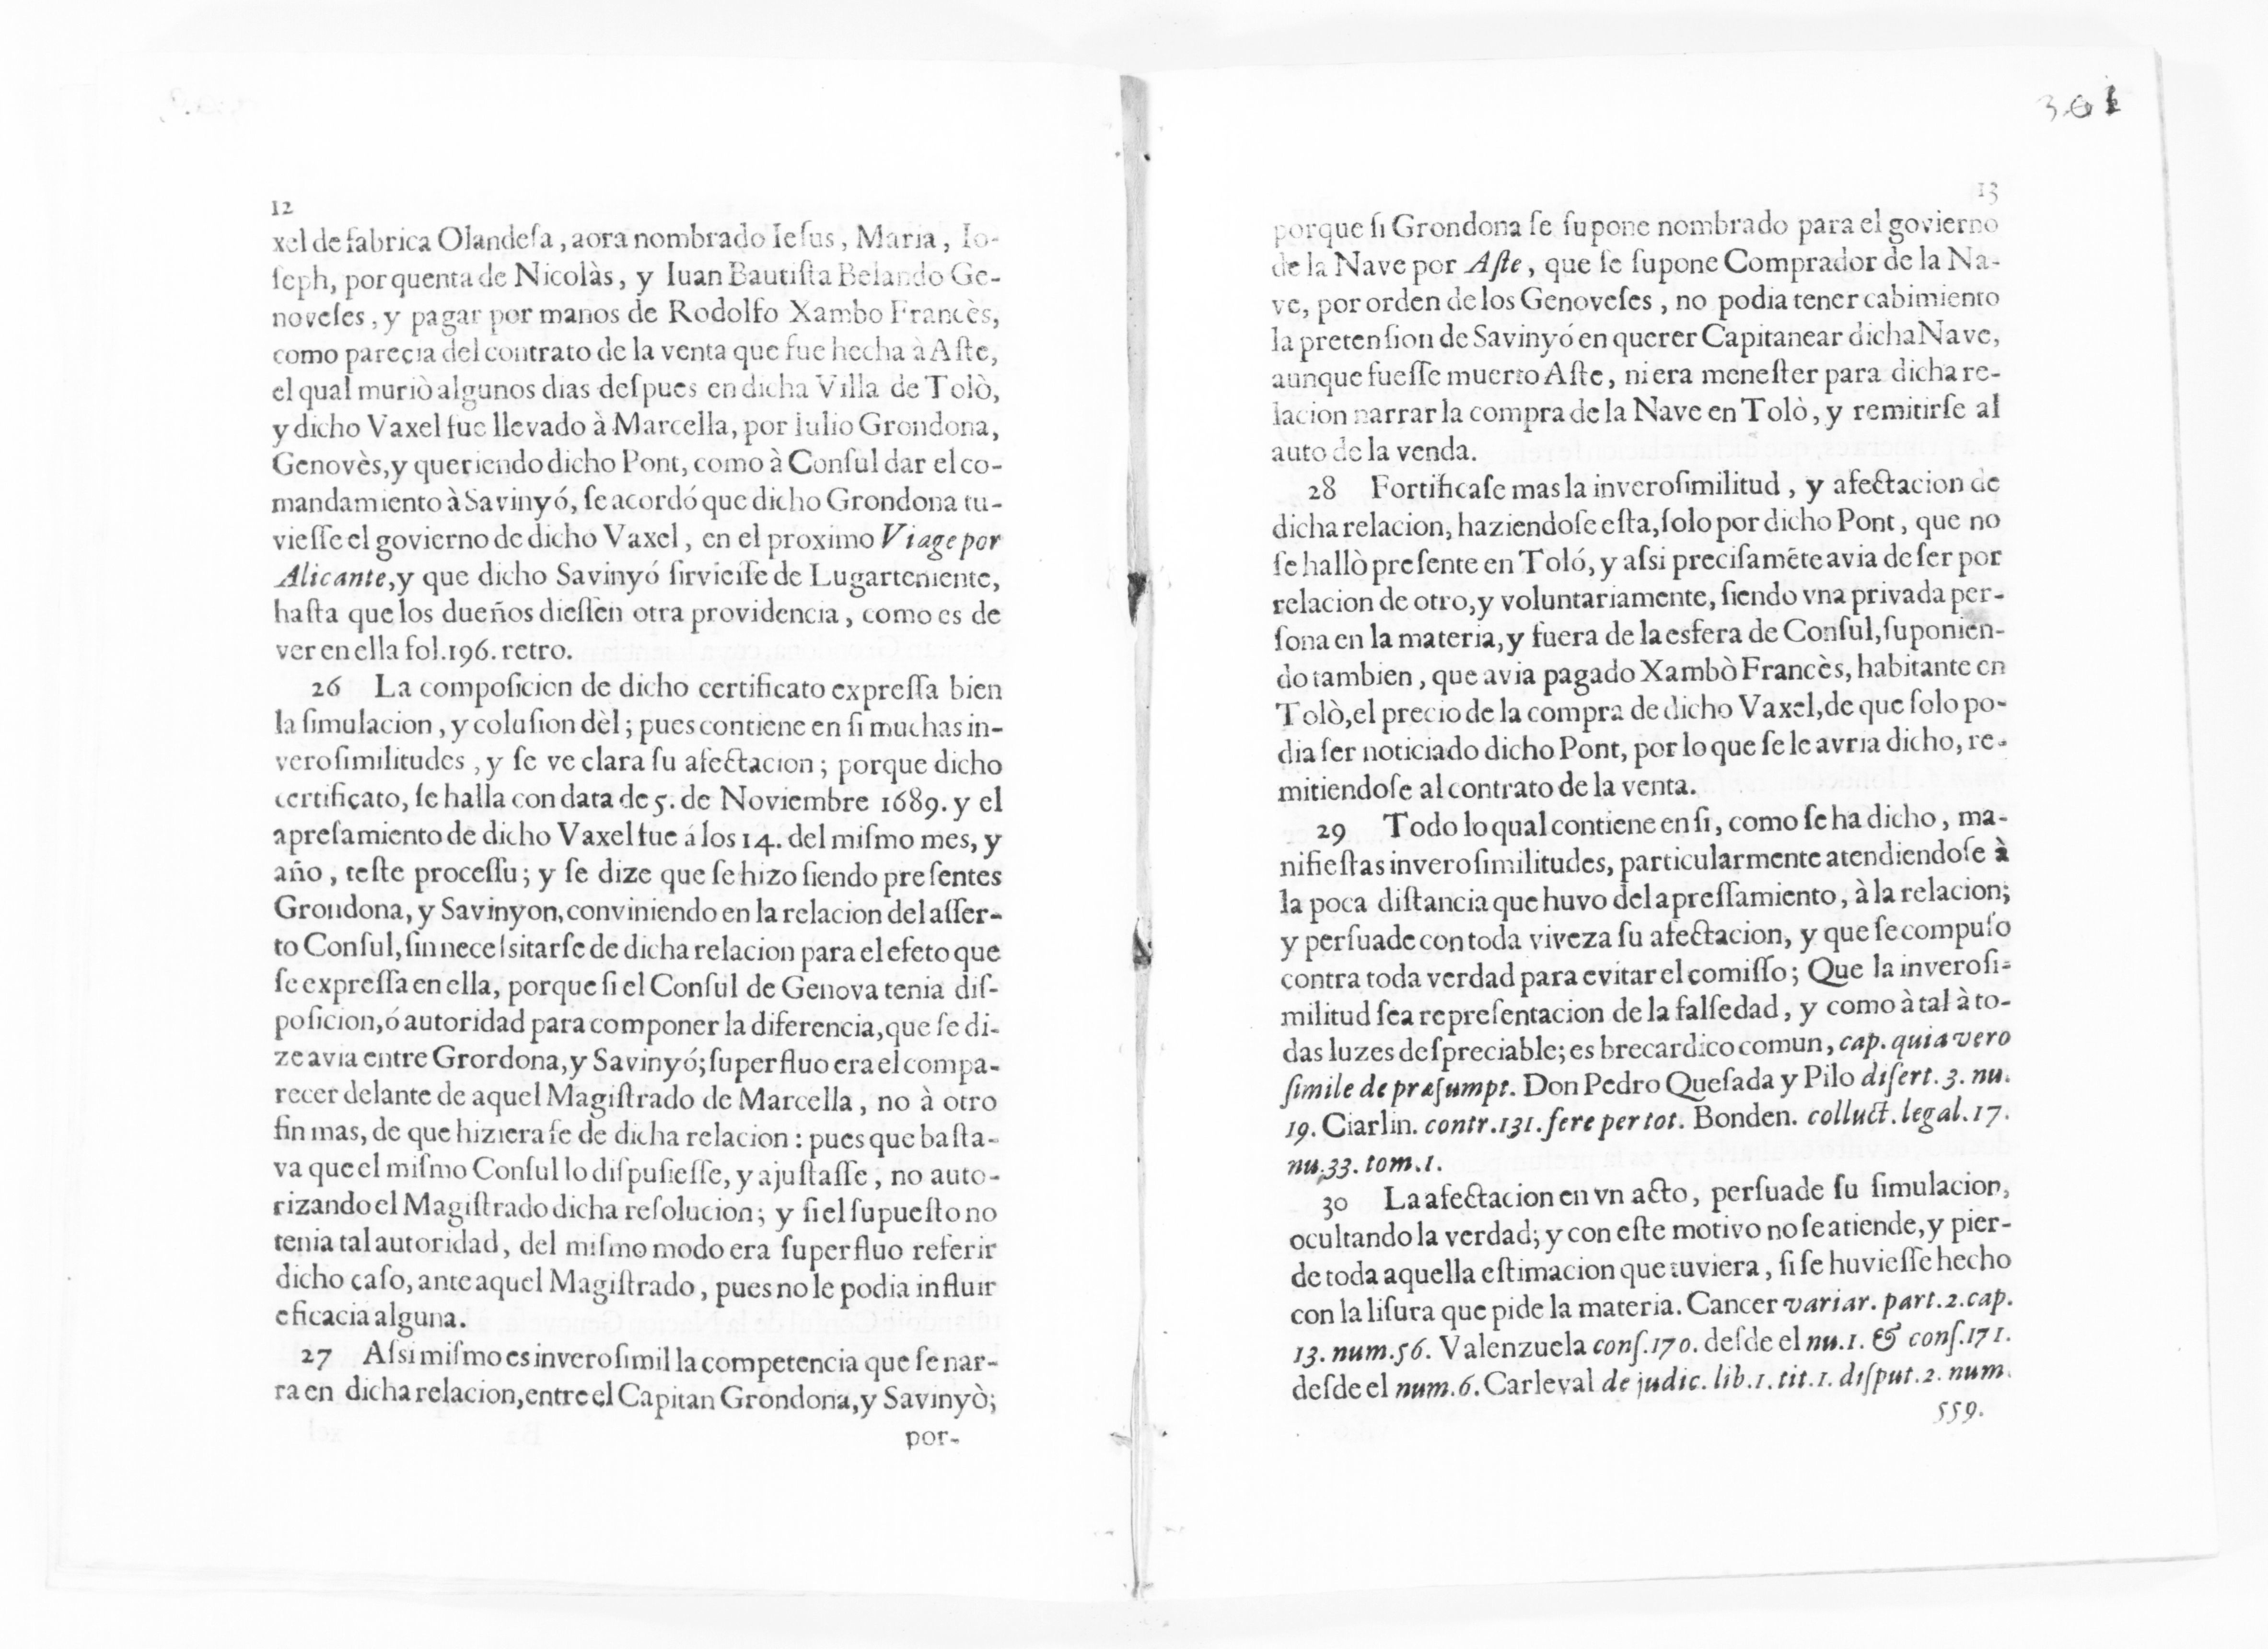 12
xel de fabrica Olandeſa, aora nombrado Ieſus, Maria, Io-
ſeph, por quenta de Nicolàs, y Iuan Bautiſta Belando Ge-
noveſes, y pagar por manos de Rodolfo Xambo Francès,
como parecia del contrato de la venta que fue hecha à Aſte,
el qual muriò algunos dias deſpues en dicha Villa de Tolò,
y dicho Vaxel fue llevado à Marcella, por Iulio Grondona,
Genovès, y queriendo dicho Pont, como à Conſul dar el co-
mandamiento à Savinyó, ſe acordó que dicho Grondona tu-
vieſſe el govierno de dicho Vaxel, en el proximo Viage por
Alicante, y que dicho Savinyó ſirvieiſe de Lugarteniente,
haſta que los dueños dieſſen otra providencia, como es de
ver en ella fol.196. retro.
26 La compoſicion de dicho certificato expreſſa bien
la ſimulacion, y coluſion dèl; pues contiene en ſi muchas in-
veroſimilitudes, y ſe ve clara ſu afectacion; porque dicho
certificato, ſe halla con data de 5. de Noviembre 1689. y el
apreſamiento de dicho Vaxel fue á los 14. del miſmo mes, y
año, teſte proceſſu; y ſe dize que ſe hizo ſiendo preſentes
Grondona, y Savinyon, conviniendo en la relacion del aſſer-
to Conſul, ſin neceſsitarſe de dicha relacion para el efeto que
ſe expreſſa en ella, porque ſi el Conſul de Genova tenia diſ-
poſicion, ó autoridad para componer la diferencia, que ſe di-
ze avia entre Grordona, y Savinyó; ſuperfluo era el compa-
recer delante de aquel Magiſtrado de Marcella, no à otro
fin mas, de que hizieraſe de dicha relacion: pues que baſta-
va que el miſmo Conſul lo diſpuſieſſe, y ajuſtaſſe, no auto-
rizando el Magiſtrado dicha reſolucion; y ſi el ſupueſto no
tenia tal autoridad, del miſmo modo era ſuperfluo referir
dicho caſo, ante aquel Magiſtrado, pues no le podia influir
eficacia alguna.
27 Aſsi miſmo es inveroſimil la competencia que ſe nar-
ra en dicha relacion, entre el Capitan Grondona, y Savinyò;
por-
13
porque ſi Grondona ſe ſupone nombrado para el govierno
de la Nave por Aſte, que ſe ſupone Comprador de la Na-
ve, por orden de los Genoveſes, no podia tener cabimiento
la pretenſion de Savinyó en querer Capitanear dicha Nave,
aunque fueſſe muerto Aſte, ni era meneſter para dicha re-
lacion narrar la compra de la Nave en Tolò, y remitirſe al
auto de la venda.
28 Fortificaſe mas la inveroſimilitud, y afectacion de
dicha relacion, haziendoſe eſta, ſolo por dicho Pont, que no
ſe hallò preſente en Toló, y aſsi preciſamẽte avia de ſer por
relacion de otro, y voluntariamente, ſiendo vna privada per-
ſona en la materia, y fuera de la esfera de Conſul, ſuponien-
do tambien, que avia pagado Xambò Francès, habitante en
Tolò, el precio de la compra de dicho Vaxel, de que ſolo po-
dia ſer noticiado dicho Pont, por lo que ſe le avria dicho, re-
mitiendoſe al contrato de la venta.
29 Todo lo qual contiene en ſi, como ſe ha dicho, ma-
nifieſtas inveroſimilitudes, particularmente atendiendoſe à
la poca diſtancia que huvo del apreſſamiento, à la relacion;
y perſuade con toda viveza ſu afectacion, y que ſe compuſo
contra toda verdad para evitar el comiſſo; Que la inveroſi-
militud ſea repreſentacion de la falſedad, y como à tal à to-
das luzes deſpreciable; es brecardico comun, cap. quia vero
ſimile de præſumpt. Don Pedro Queſada y Pilo diſert. 3. nu.
19. Ciarlin. contr.131. fere per tot. Bonden. colluct. legal.17.
nu.33. tom.1.
30 La afectacion en vn acto, perſuade ſu ſimulacion,
ocultando la verdad; y con eſte motivo no ſe atiende, y pier-
de toda aquella eſtimacion que tuviera, ſi ſe huvieſſe hecho
con la liſura que pide la materia. Cancer variar. part.2.cap.
13. num.56. Valenzuela conſ.170. deſde el nu.1. & conſ.171.
deſde el num.6. Carleval de judic. lib.1. tit.1. diſput.2. num.
559.